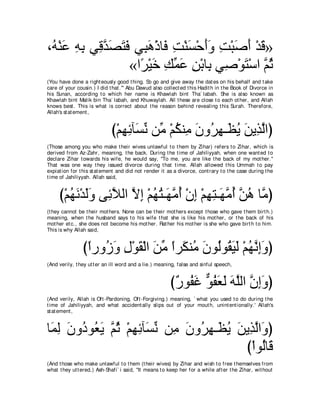 «قَدْ أَصَبْتِ وَأَحْسَنْتِ فَاذْهَبِي فَتَصَدَّقِي بِهِ عَنْهُ،
ثُمَّ اسْتَوْصِي بِابْنِ عَمِّكِ خَيْرًا»
(You have done a righteously good thing. So go and give away the dates on his behalf and take
care of your cousin.) I did that.'" Abu Dawud also collected this Hadith in the Book of Divorce in
his Sunan, according to which her name is Khawlah bint Tha`labah. She is also known as
Khawlah bint Malik bin Tha`labah, and Khuwaylah. All these are close to each other, and Allah
knows best. This is what is correct about the reason behind revealing this Surah. Therefore,
Allah's statement,
(الَّذِينَ يُظَـهِرُونَ مِنكُمْ مِّن نِّسَآئِهِمْ)
(Those among you who make their wives unlawful to them by Zihar) refers to Zihar, which is
derived from Az-Zahr, meaning, the back. During the time of Jahiliyyah, when one wanted to
declare Zihar towards his wife, he would say, "To me, you are like the back of my mother.''
That was one way they issued divorce during that time. Allah allowed this Ummah to pay
expiation for this statement and did not render it as a divorce, contrary to the case during the
time of Jahiliyyah. Allah said,
(مَّا هُنَّ أُمَّهَـتِهِمْ إِنْ أُمَّهَـتُهُمْ إِلاَّ اللاَّئِى وَلَدْنَهُمْ)
(they cannot be their mothers. None can be their mothers except those who gave them birth.)
meaning, when the husband says to his wife that she is like his mother, or the back of his
mother etc., she does not become his mother. Rather his mother is she who gave birth to him.
This is why Allah said,
(وَإِنَّهُمْ لَيَقُولُونَ مُنكَراً مِّنَ الْقَوْلِ وَزُوراً)
(And verily, they utter an ill word and a lie.) meaning, false and sinful speech,
(وَإِنَّ اللَّهَ لَعَفُوٌّ غَفُورٌ)
(And verily, Allah is Oft-Pardoning, Oft-Forgiving.) meaning, `what you used to do during the
time of Jahiliyyah, and what accidentally slips out of your mouth, unintentionally.' Allah's
statement,
(وَالَّذِينَ يُظَـهِرُونَ مِن نِّسَآئِهِمْ ثُمَّ يَعُودُونَ لِمَا
قَالُواْ)
(And those who make unlawful to them (their wives) by Zihar and wish to free themselves from
what they uttered,) Ash-Shafi`i said, "It means to keep her for a while after the Zihar, without